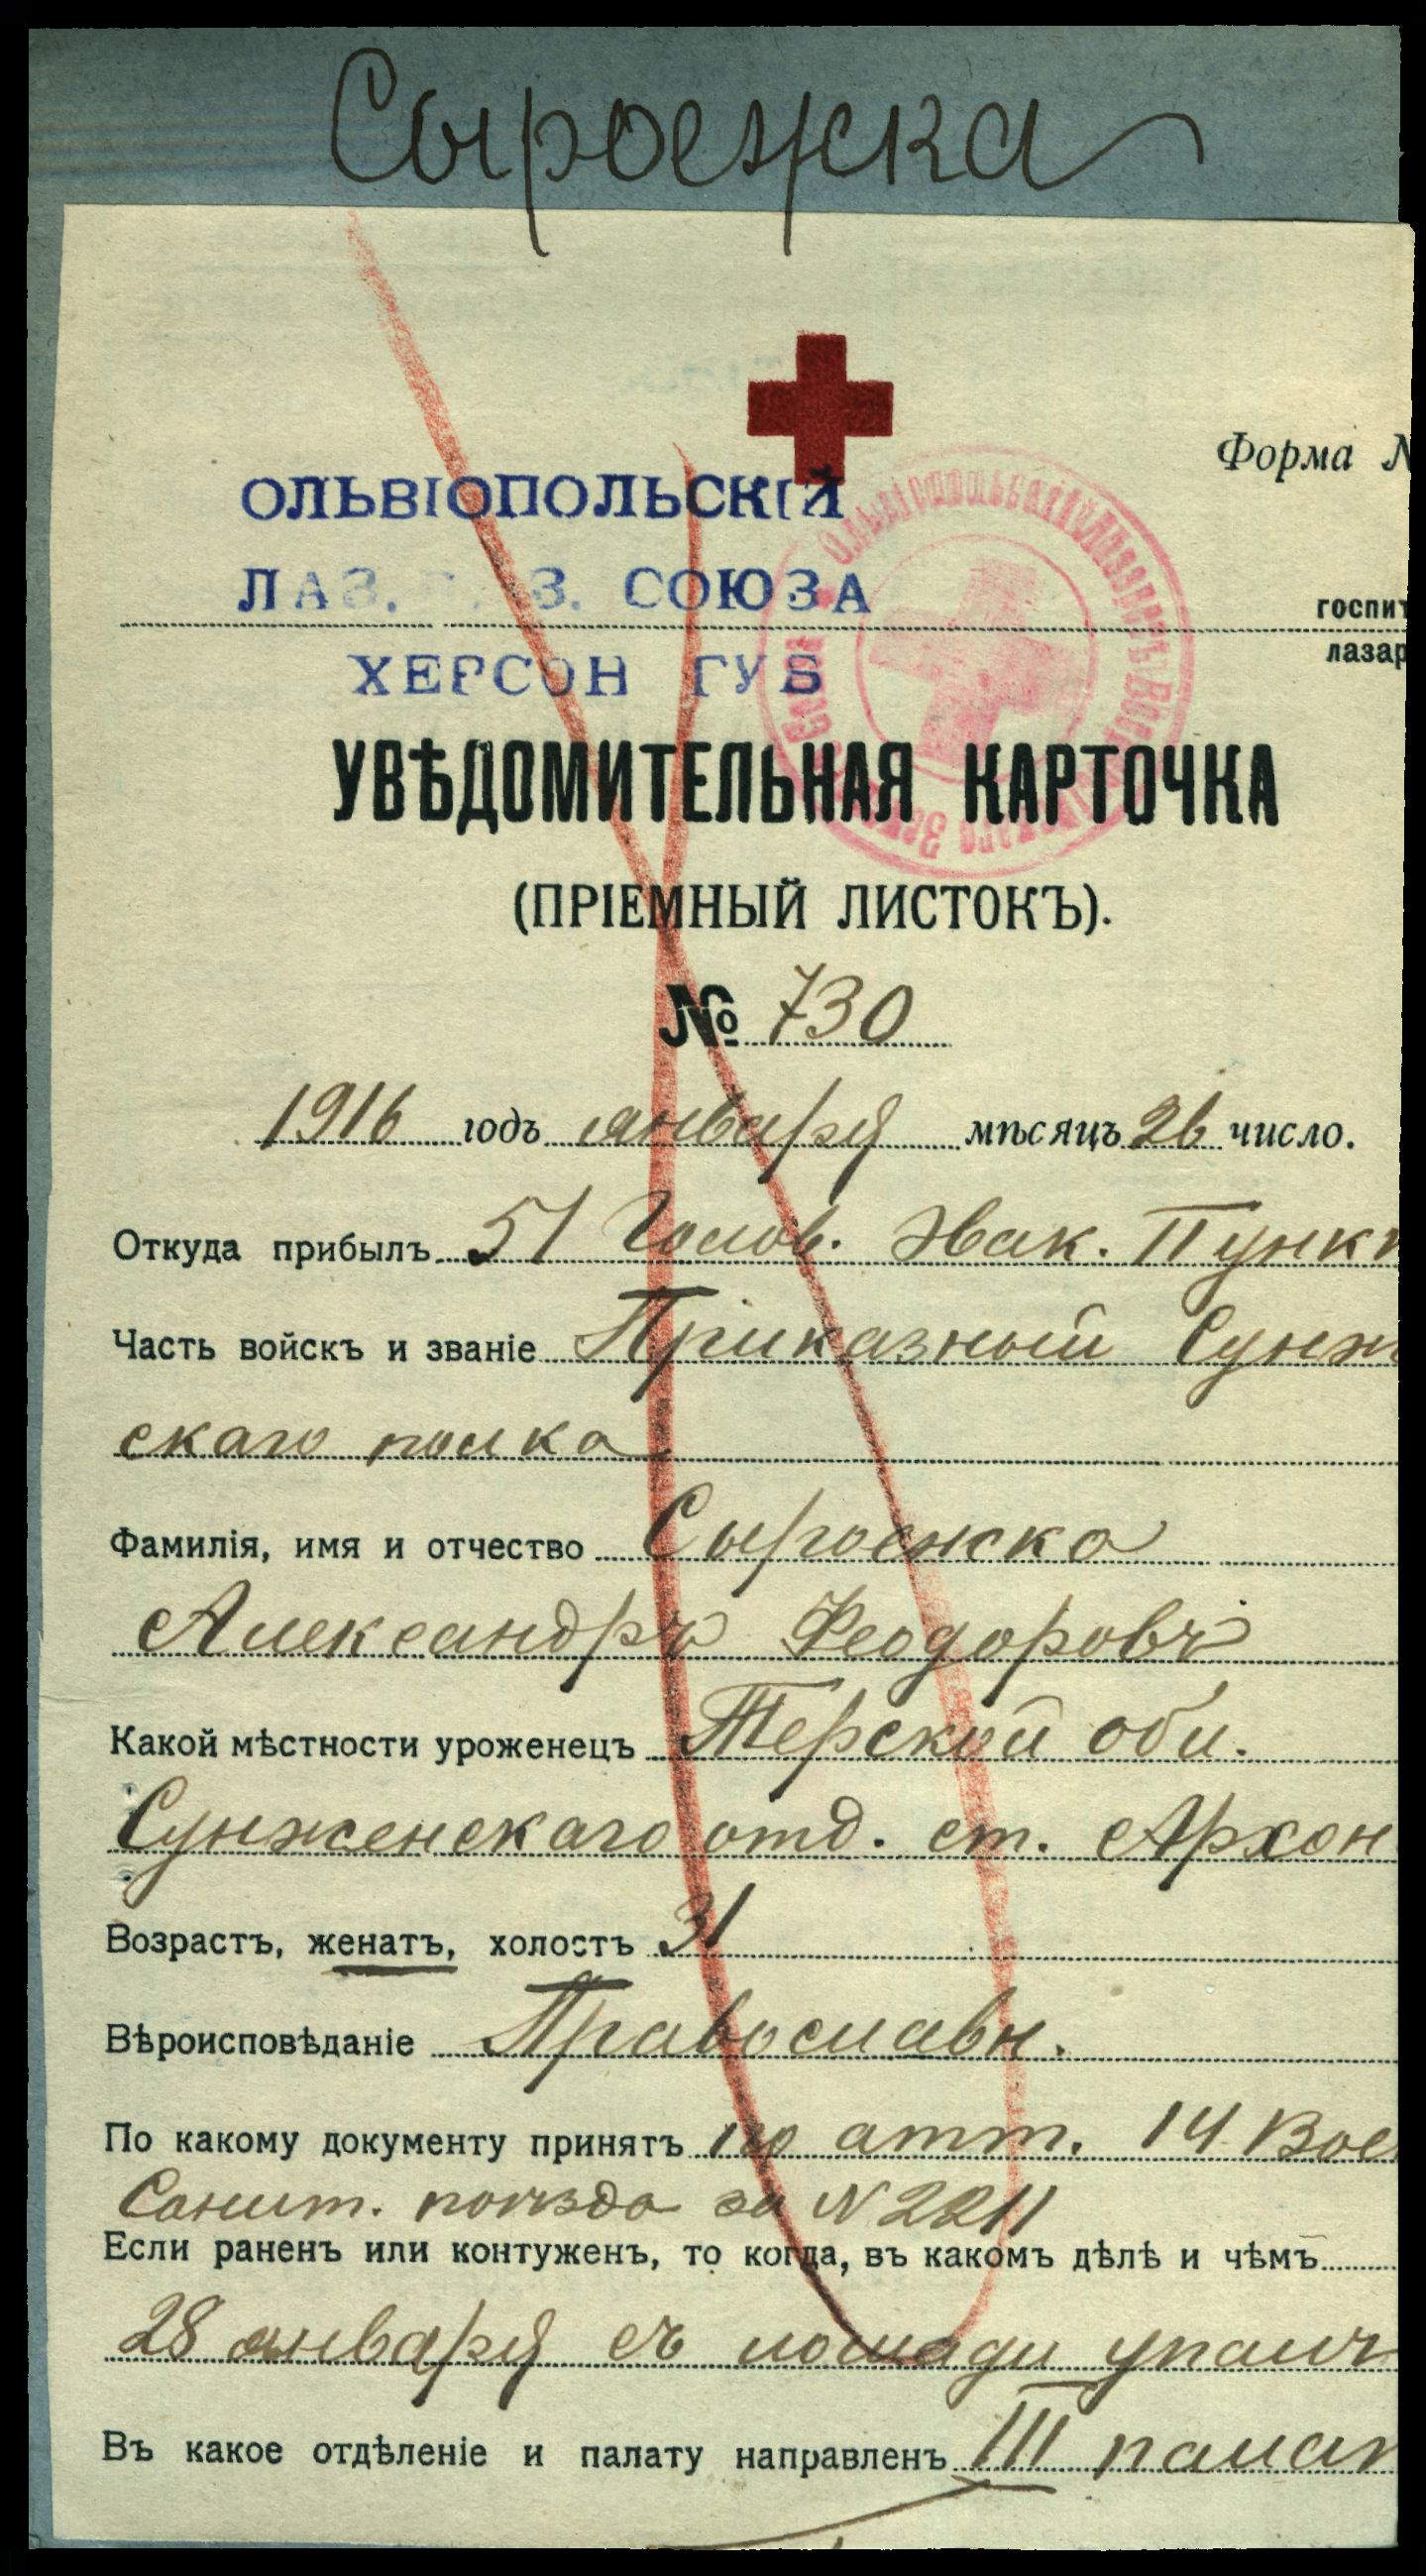 Сыроежка
Форма №
ОЛЬВІОПОЛЬСКІЙ
ЛАЗ. З. СОЮЗА
госпит
лазар
ХЕРСОН ГУБ
УВѢДОМИТЕЛЬНАЯ КАРТОЧКА
(ПРІЕМНЫЙ ЛИСТОКЪ).
№ 730
1916 годъ января мѣсяцъ 26 число.
Откуда прибылъ 51 Голов. Эвак. Пункт
Часть войскъ и званіе Приказный Сунж
скаго полка
Фамилія, имя и отчество Сыроежко
Александръ Феодоровъ
Какой мѣстности уроженецъ Терской обл.
Сунженскаго отд. ст. Архон
Возрастъ, женатъ, холостъ 31
Вѣроисповѣданіе Православн.
По какому документу принятъ по атт. 14 Вое
Санит. поѣзда за N 2211
Если раненъ или контуженъ, то когда, въ какомъ дѣлѣ и чѣмъ
28 января съ лошади упалъ
Въ какое отдѣленіе и палату направленъ III палат